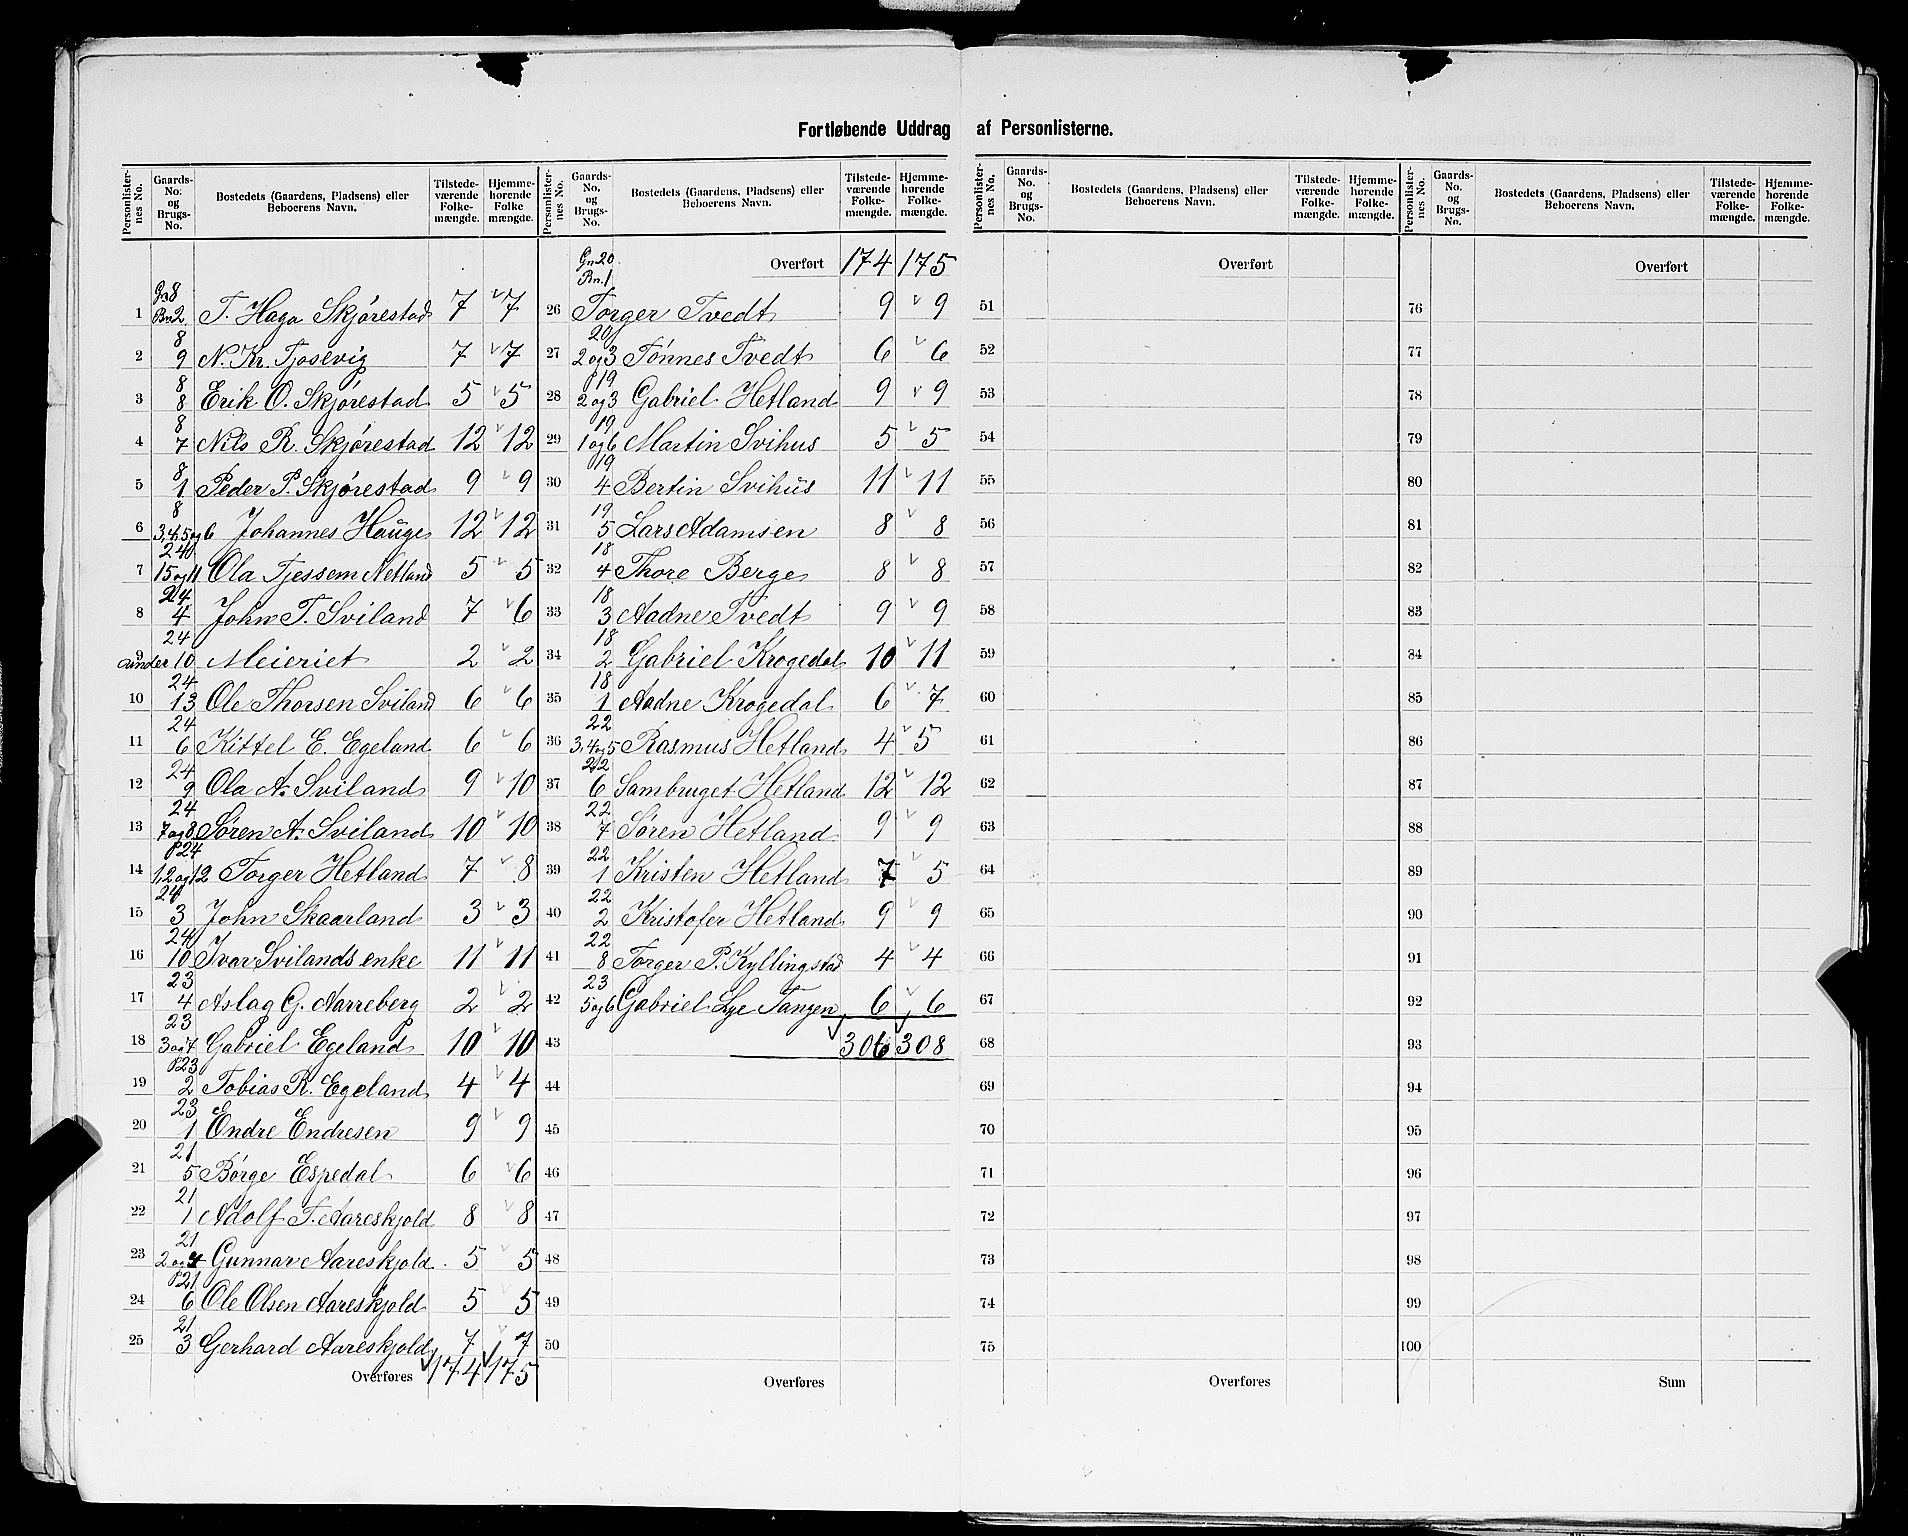 Fortløbende Uddrag af Personlisterne.
Personlisternes No. Gaards-No. og Brugs-No. Bostedets (Gaardens, Pladsens) eller Beboerens Navn. Tilstedeværende Folkemængde. Hjemmehørende Folkemængde.
1 Gn 8 Bn 2 T. Haga Skjørestad 7 7
2 8 9 N. Kr. Tjosevig 7 7
3 8 8 Erik O. Skjørestad 5 5
4 8 7 Nils R. Skjørestad 12 12
5 8 1 Peder P. Skjørestad 9 9
6 8 3,4,5 og 6 Johannes Hauge 12 12
7 24 15 og 11 Ola Tjessem Netland 5 5
8 24 4 John T. Sviland 7 6
9 24 under 10 Meieriet 2 2
10 24 13 Ole Thorsen Sviland 6 6
11 24 6 Kittel E. Egeland 6 6
12 24 9 Ola A. Sviland 9 10
13 24 7 og 8 Søren A. Sviland 10 10
14 24 1,2 og 12 Torger Hetland 7 8
15 24 3 John Skaarland 3 3
16 24 10 Ivar Svilands enke 11 11
17 23 4 Aslag G. Aarreberg 2 2
18 23 3 og 7 Gabriel Egeland 10 10
19 23 2 Tobias R. Egeland 4 4
20 23 1 Endre Endresen 9 9
21 21 5 Børge Espedal 6 6
22 21 1 Adolf T. Aareskjold 8 8
23 21 2 og 4 Gunnar Aareskjold 5 5
24 21 6 Ole Olsen Aareskjold 5 5
25 21 3 Gerhard Aareskjold 7 7
Overføres 174 175
Personlisternes No. Gaards-No. og Brugs-No. Bostedets (Gaardens, Pladsens) eller Beboerens Navn. Tilstedeværende Folkemængde. Hjemmehørende Folkemængde.
Overført 174 175
26 Gn 20 Bn. 1 Torger Tvedt 9 9
27 20 2 og 3 Tønnes Tvedt 6 6
28 19 2 og 3 Gabriel Hetland 9 9
29 19 1 og 6 Martin Svihus 5 5
30 19 4 Bertin Svihus 11 11
31 19 5 Lars Adamsen 8 8
32 18 4 Thore Berge 8 8
33 18 3 Aadne Tvedt 9 9
34 18 2 Gabriel Krogedal 10 11
35 18 1 Aadne Krogedal 6 7
36 22 3,4 og 5 Rasmus Hetland 4 5
37 22 6 Sambruget Hetland 12 12
38 22 7 Søren Hetland 9 9
39 22 1 Kristen Hetland 7 5
40 22 2 Kristofer Hetland 9 9
41 22 8 Torger P. Kyllingstad 4 4
42 23 5 og 6 Gabriel Lye Tangen 6 6
43 306 308
44
45
46
47
48
49
50
Overføres
Personlisternes No. Gaards-No. og Brugs-No. Bostedets (Gaardens, Pladsens) eller Beboerens Navn. Tilstedeværende Folkemængde. Hjemmehørende Folkemængde.
Overført
51
52
53
54
55
56
57
58
59
60
61
62
63
64
65
66
67
68
69
70
71
72
73
74
75
Overføres
Personlisternes No. Gaards-No. og Brugs-No. Bostedets (Gaardens, Pladsens) eller Beboerens Navn. Tilstedeværende Folkemængde. Hjemmehørende Folkemængde.
Overført
76
77
78
79
80
81
82
83
84
85
86
87
88
89
90
91
92
93
94
95
96
97
98
99
100
Sum